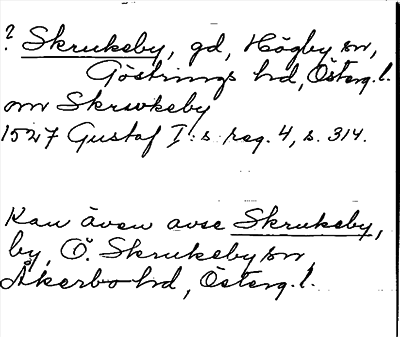 ? Skrukeby, gd, Högby sn,
Göstrings hd, Österg. l.
om Skrwkeby
1527 Gustaf I:s reg. 4, s. 314.
Kan även avse Skrukeby,
by, Ö. Skrukeby sn,
Åkerbo hd, Österg. l.